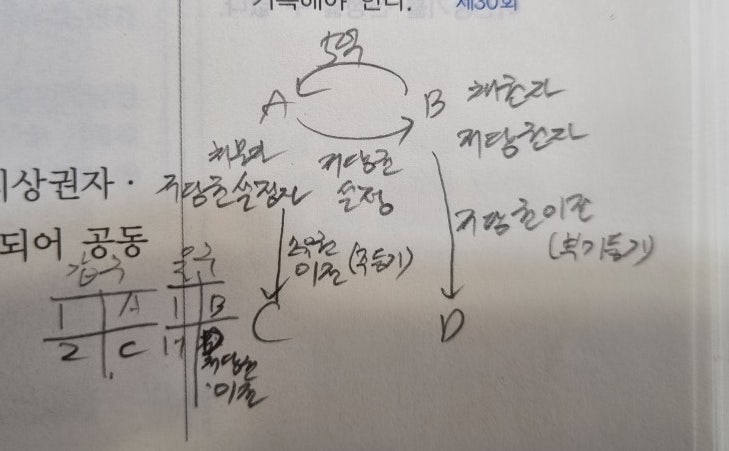 기록해야 한다. 제30회
5억
A B 채권자
저당권자
채무자 저당권
저당권설정자 설정
저당권이전
(부기등기)
소유권
이전(주등기)
C D
되상권자·
되어 공동
갑구 을구
1 A 1 B
2 C 1-1 D
저당권
이전